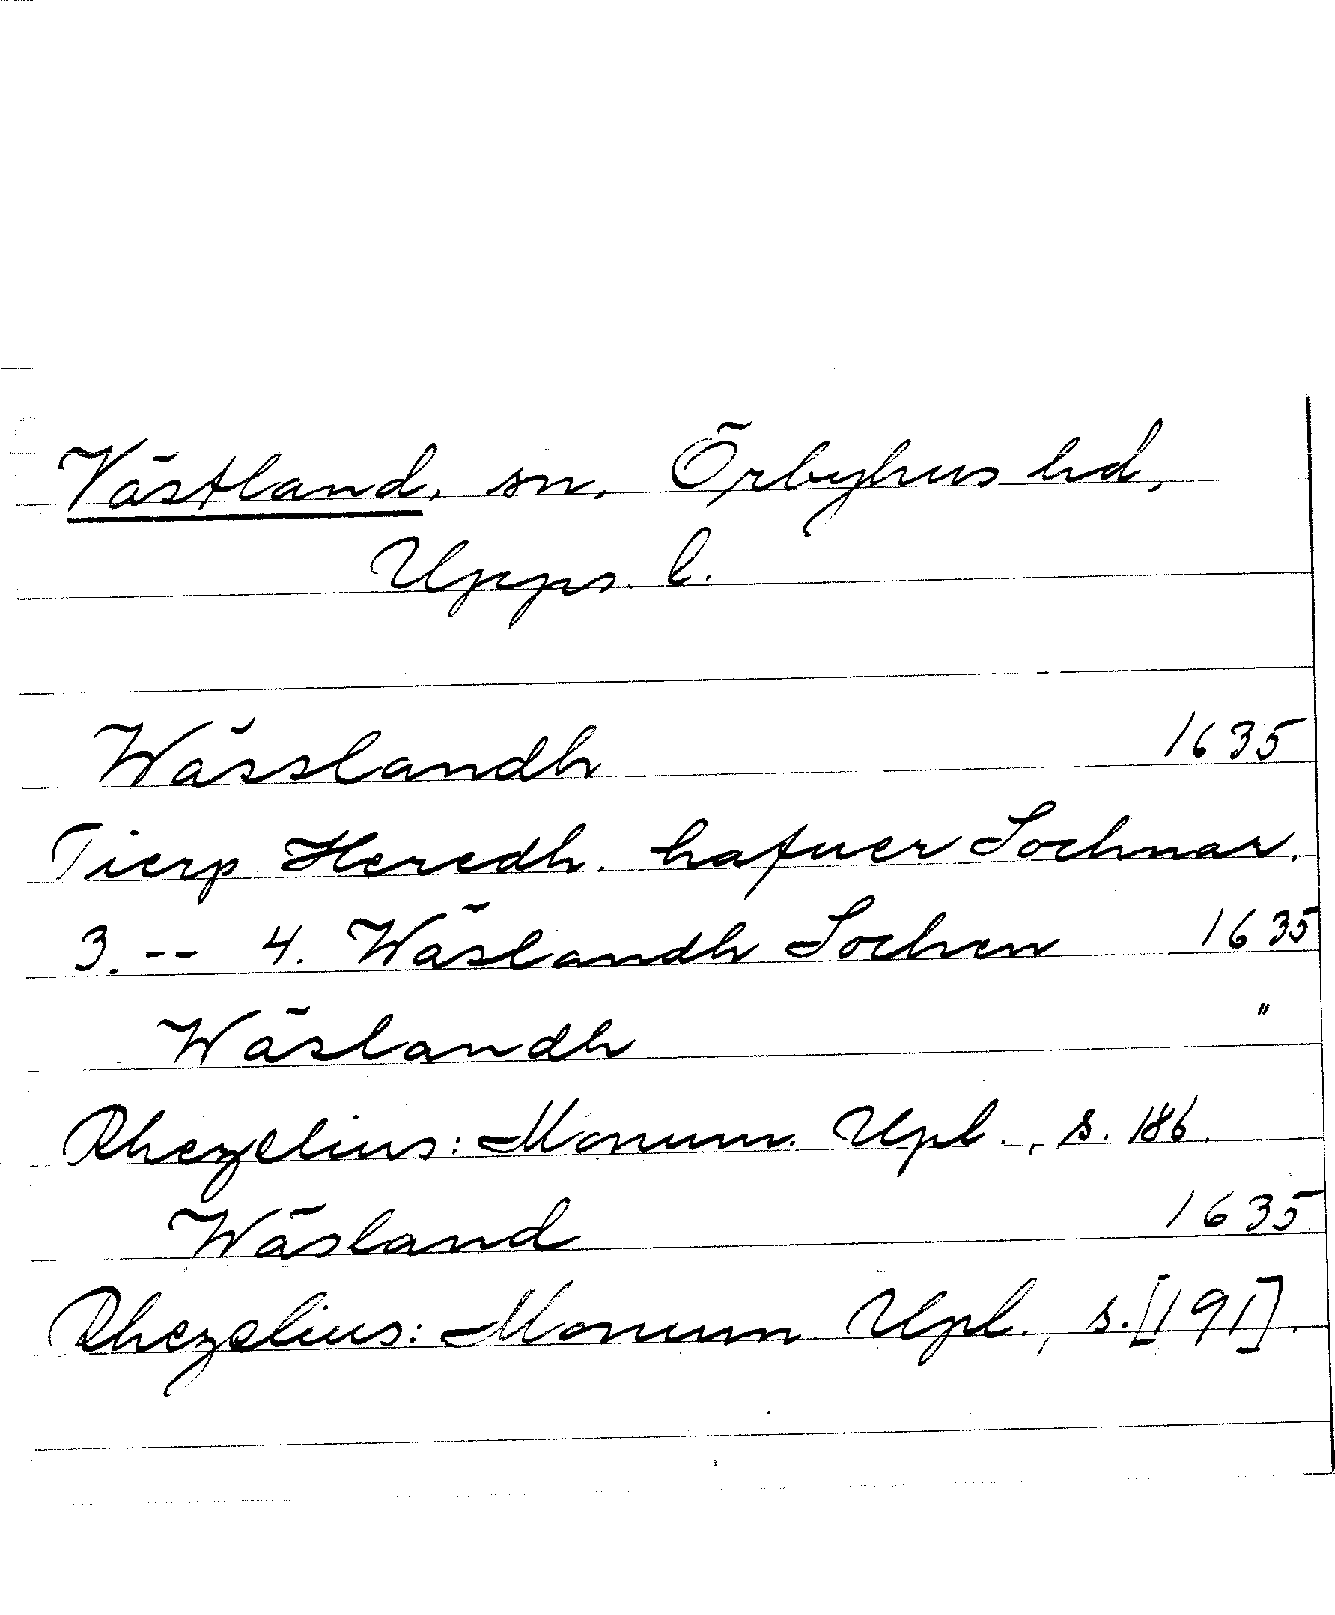 Västland, sn, Örbyhus hd,
Upps. l.
Wässlandh 1635
Tierp Heredh. hafuer Sochnar.
3. -- 4. Wäslandh Sochen 1635
Wäslandh "
Rhezelius: Monum. Upl., s. 186.
Wäsland 1635
Rhezelius: Monum Upl., s. [191].